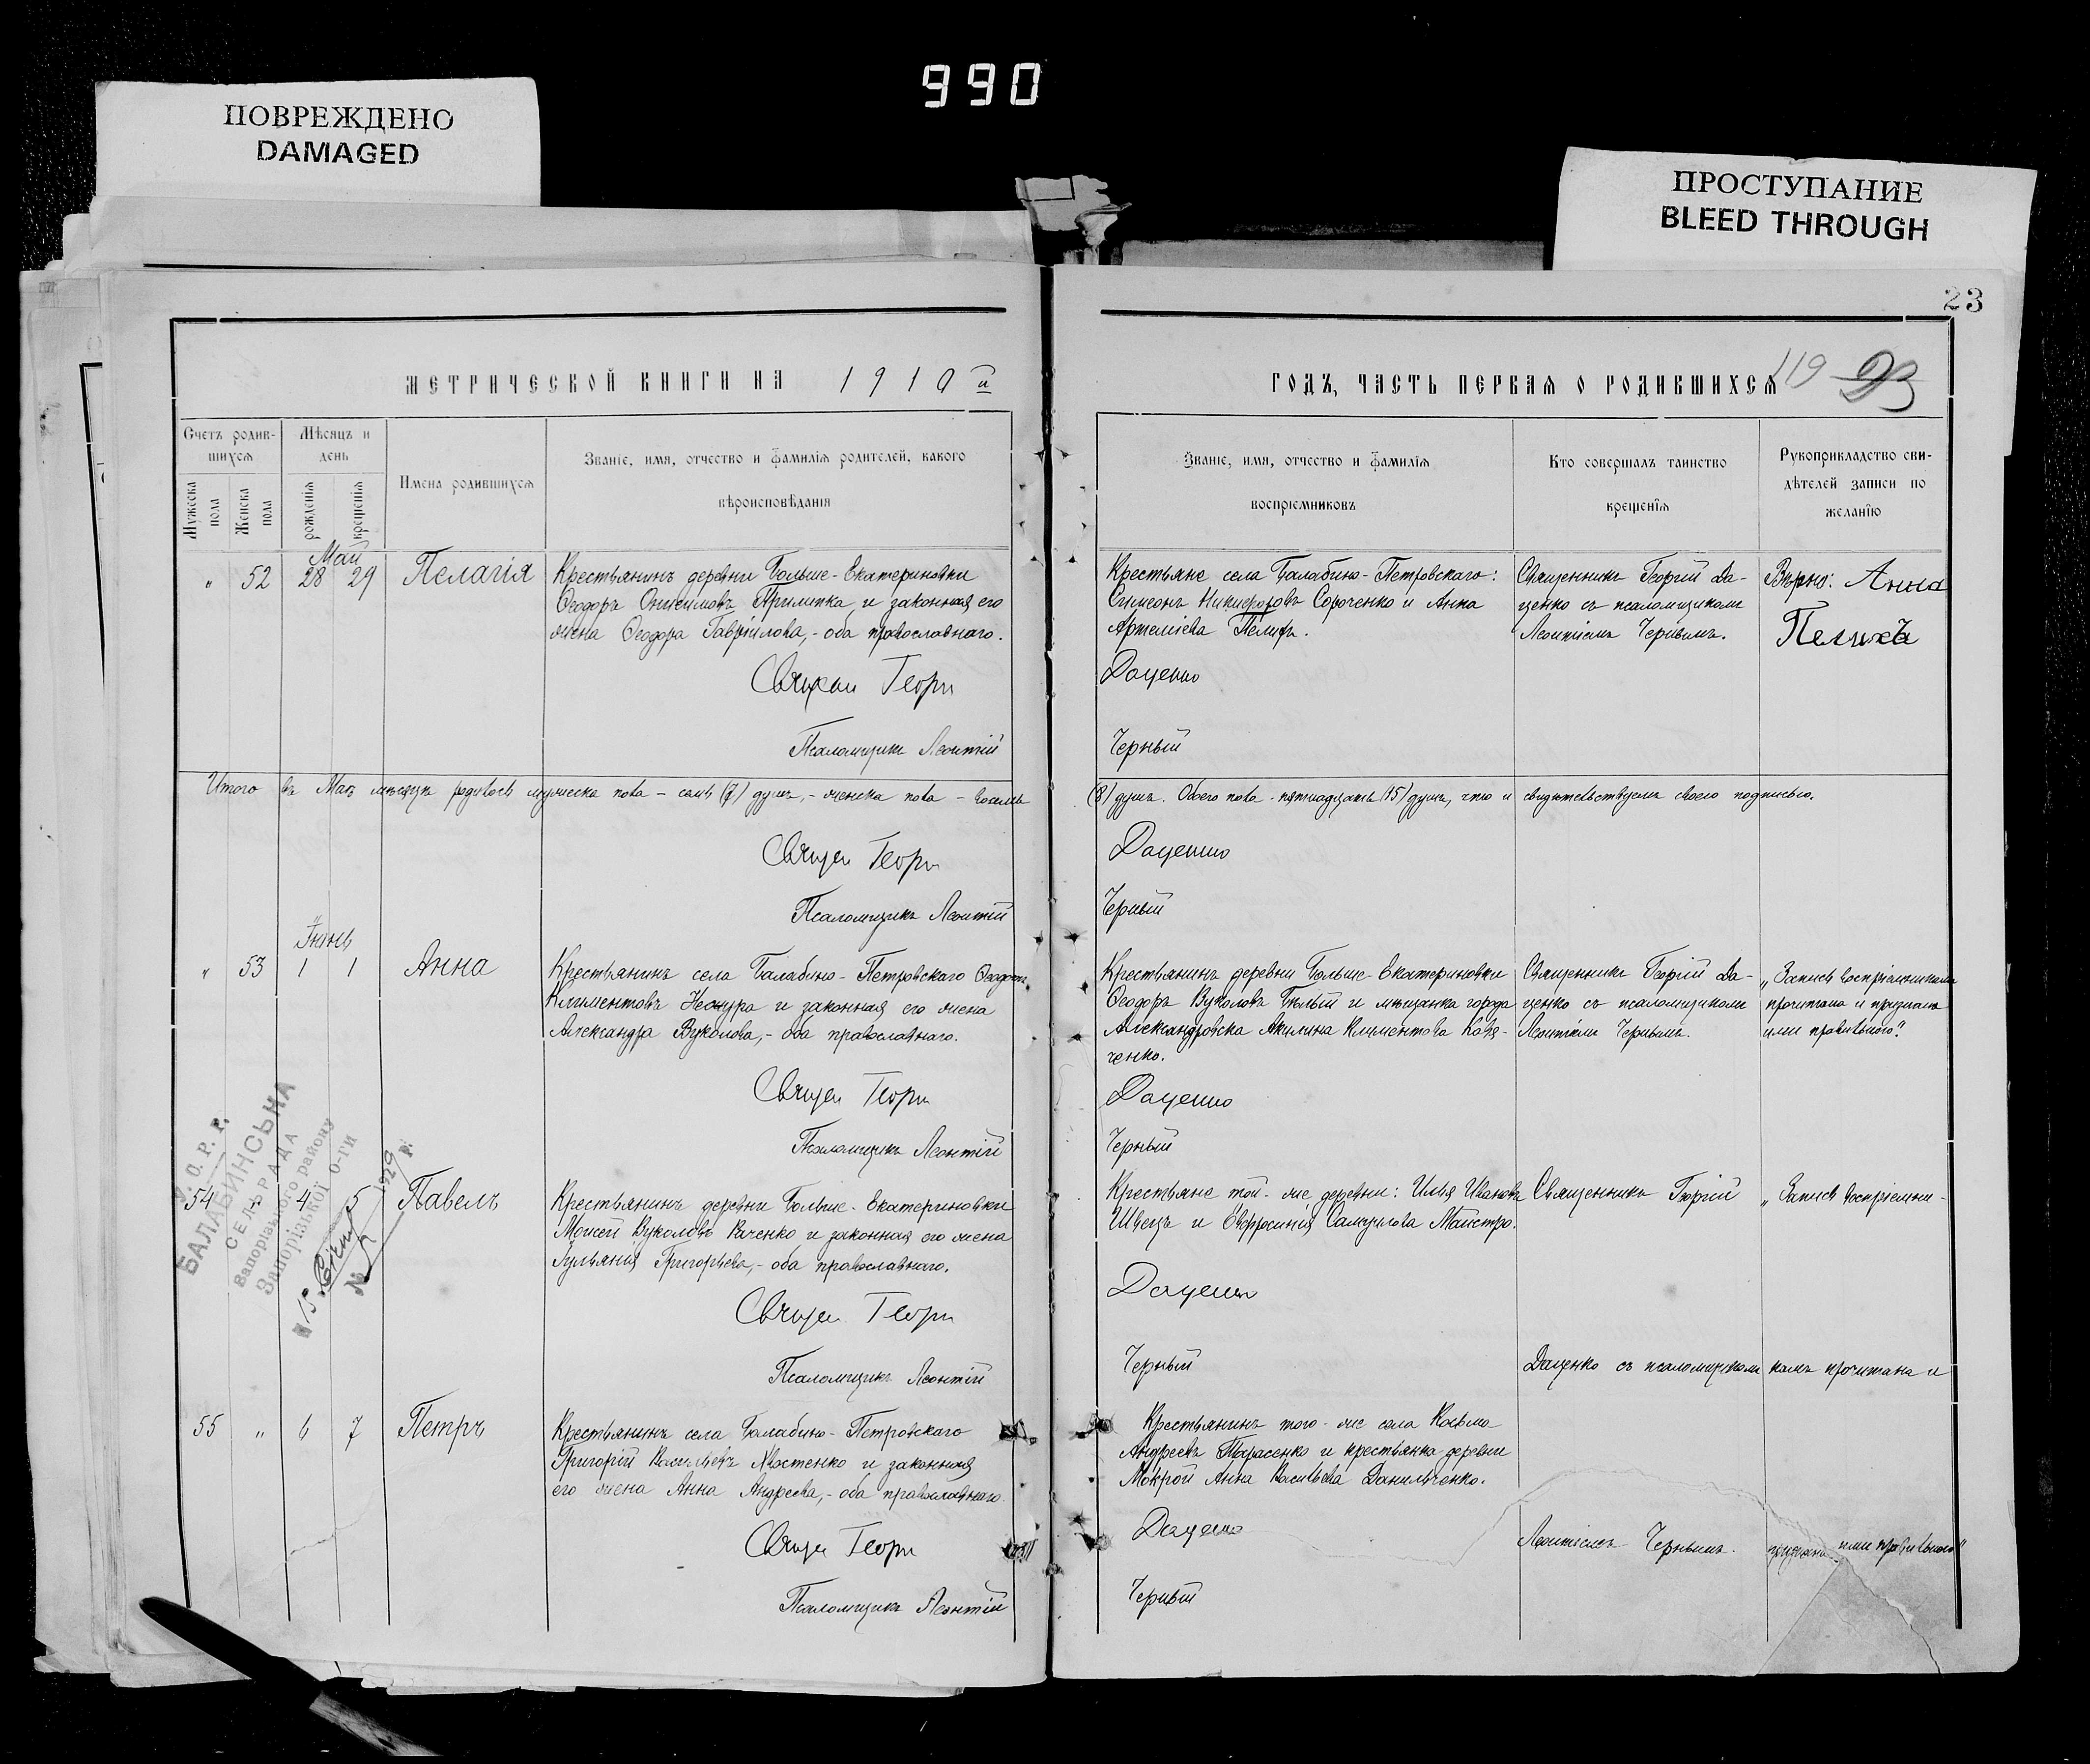 990
ПОВРЕЖДЕНО
DAMAGED
ПРОСТУПАНИЕ
BLEED THROUGH
23
МЕТРИЧЕСКОЙ КНИГИ НА 1910 й
ГОДЪ, ЧАСТЬ ПЕРВАЯ О РОДИВШИХСЯ
119 23
Счетъ родив-
шихся
Мѣсяцъ и
день
Мужеска
пола
Женска
пола
рожденія
крещенія
Имена родившихся
Званіе, имя, отчество и фамилія родителей, какого
вѣроисповѣданія
Званіе, имя, отчество и фамилія
воспріемниковъ
Кто совершалъ таинство
крещенія
Рукоприкладство сви-
дѣтелей записи по
желанію
Май
" 52 28 29 Пелагія
Крестьянинъ деревни Больше-Екатериновки
Ѳеодоръ Онисимовъ Прилипка и законная его
жена Ѳеодора Гавріилова,- оба православнаго.
Священ Георг
Псаломщикъ Леонтій
Крестьяне села Балабино-Петровскаго:
Симеонъ Никифоровъ Сороченко и Анна
Артеміева Пелихъ.
Даценко
Черный
Священникъ Георгій Да-
ценко съ псаломщикомъ
Леонтіемъ Чернымъ.
Вѣрно: Анна
Пелиха
Итого въ Маѣ мѣсяцѣ родилось мужеска пола - семь (7) душъ, - женска пола - восемь
(8) душъ. Обоего пола - пятнадцать (15) душъ, что и свидѣтельствуемъ своею подписью.
Священ Георг
Даценко
Псаломщикъ Леонтій
Черный
Іюнь
" 53 1 1 Анна
Крестьянинъ села Балабино-Петровскаго Ѳеодотъ
Климентовъ и законная его жена
Александра Вуколова,- оба православнаго.
Священ Георг
Псаломщикъ Леонтій
Крестьянинъ деревни Больше-Екатериновки
Ѳеодоръ Вуколовъ Бѣлый и мѣщанка города
Александровска Акилина Климентова
ченко.
Даценко
Черный
Священникъ Георгій Да-
ценко съ псаломщикомъ
Леонтіемъ Чернымъ.
„Запись воспріемниками
прочитана и признана
ими правильною".
У. С. Р. Р.
БАЛАБИНСЬКА
СЕЛЬРАДА
Запорізького району
Запорізької о-ги
1929 р.
№
54 " 4 5 Павелъ
Крестьянинъ деревни Больше-Екатериновки
Моисей Вуколовъ и законная его жена
Іуліанія Григорьева,- оба православнаго.
Священ Георг
Псаломщикъ Леонтій
Крестьяне той-же деревни: Илья Ивановъ
Швецъ и Евфросинія Самуилова Майстро.
Даценко
Черный
Священникъ Георгій
„Запись воспріемни-
Даценко съ псаломщикомъ
камъ прочитана и
55 " 6 7 Петръ
Крестьянинъ села Балабино-Петровскаго
Григорій Васильевъ Хвостенко и законная
его жена Анна Андреева,- оба православнаго.
Священ Георг
Псаломщикъ Леонтій
Крестьянинъ того-же села Косьма
Андреевъ Тарасенко и крестьянка деревни
Мокрой Анна Васильева Данильченко.
Даценко
Черный
Леонтіемъ Чернымъ.
признана ими правильною"